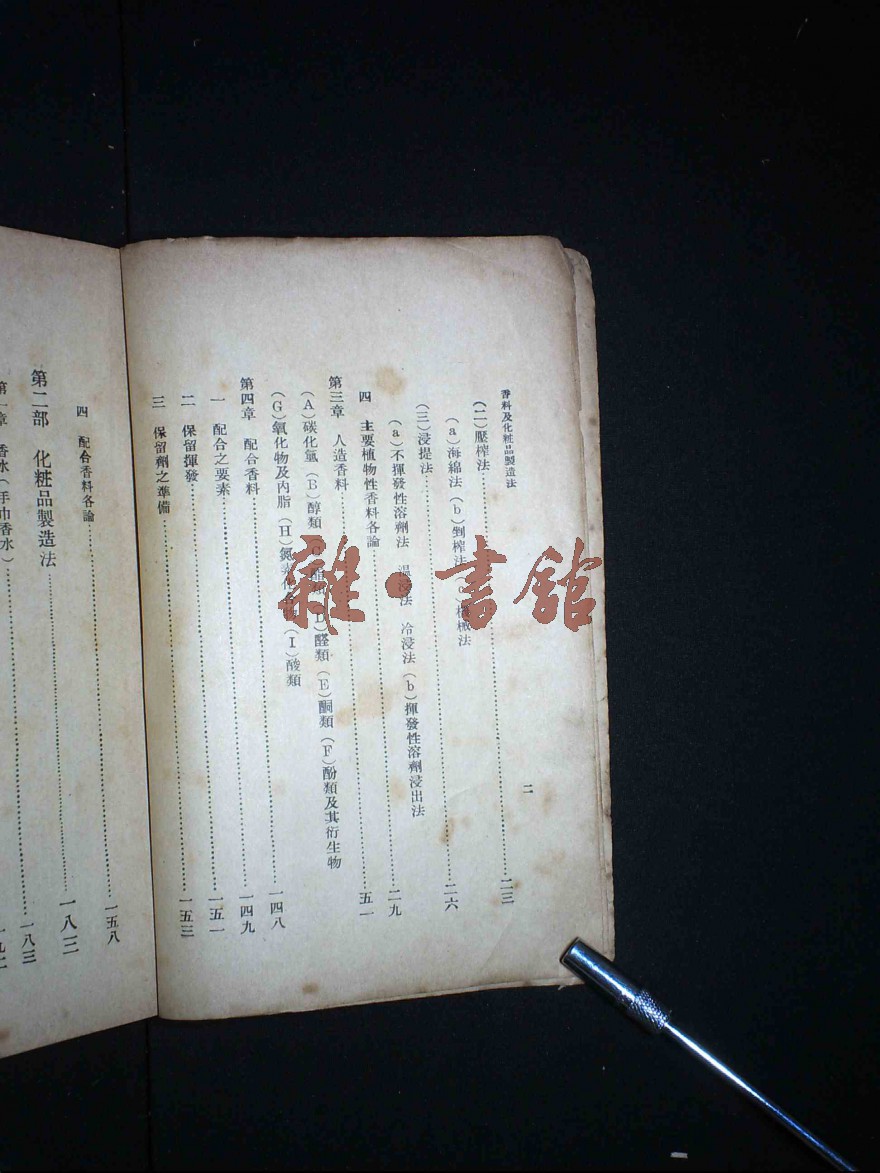 香料及化粧品製造法 二
(二)壓榨法……二三
(a)海綿法 (b)剉榨法 (c)機械法
(三)浸提法……二六
(a)不揮發性溶劑法 溫浸法 冷浸法 (b)揮發性溶劑浸出法
四 主要植物性香料各論……二九
第三章 人造香料……五一
(A)碳化氫 (B)醇類 (D)醛類 (E)酮類 (F)酚類及其衍生物
(G)氧化物及內脂 (H)氮素化合物 (I)酸類
第四章 配合香料……一四八
一 配合之要素……一四九
二 保留揮發……一五一
三 保留劑之準備……一五三
四 配合香料各論……一五八
第二部 化粧品製造法……一八三
第一章 香水(手巾香水)……一八三
雜·書館